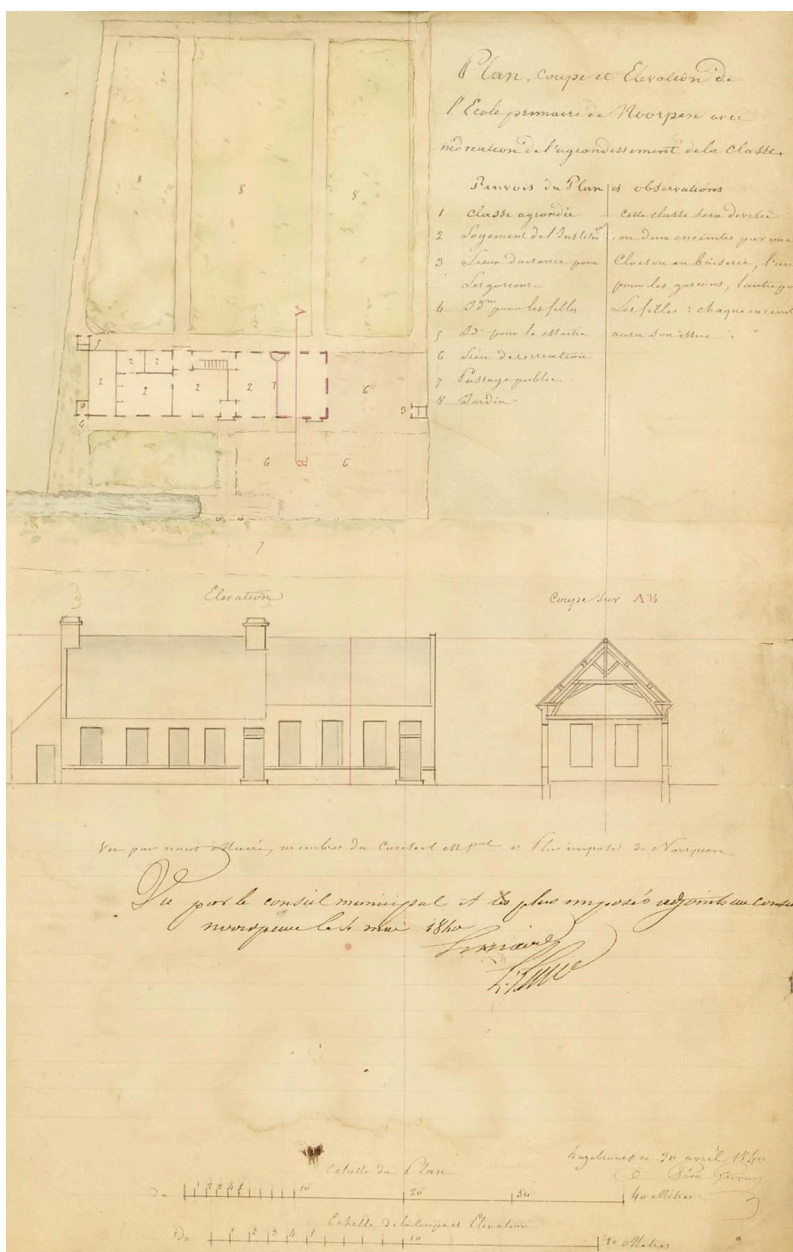 Plan, Coupe et Elevation de
l'Ecole primaire de Noorpen avec
indication de l'agrandissement de la Classe.
Renvois du Plan et observations
1 Classe agrandie
2 Logement de l'Institeur
3 Lieux d'aisance pour
Les garçons.
4 Idm pour les filles
5 Idm pour le Maitre
6 Lieu de recreation
7 Passage public
8 Jardin
cette classe sera divisée
en deux enceintes par une
Cloison en boiserie, l'une
pour les garçons, l'autre
Les filles : chaque
aura son issue.
8
8
8
5
2
2
2
2
2
2
1
A
6
3
4
6
6
B
7
Elevation
Coupe sur AB
Vu par nous Maire, membres du Conseil Mpal et Plus imposés de Noorpeene
Vu par le conseil municipal et les plus imposés adjoints au conseil
noordpeene le 4 mai 1840
Hazebrouck ce 30 avril 1840
Echelle du Plan
De 1 2 3 4 5 10 20 30 40 Mètres
Echelle de la Coupe et Elevation
De 1 2 3 4 5 10 20 Mètres